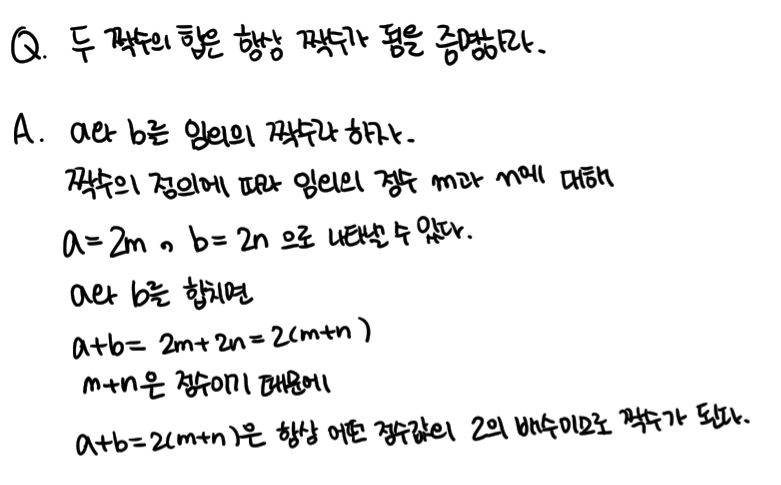 Q. 두 짝수의 합은 항상 짝수가 됨을 증명하라.
A. a와 b를 임의의 짝수라 하자.
짝수의 정의에 따라 임의의 정수 m과 n에 대해
a=2m, b=2n 으로 나타낼 수 있다.
a와 b를 합치면
a+b= 2m+2n=2(m+n)
m+n은 정수이기 때문에
a+b=2(m+n)은 항상 어떤 정수값의 2의 배수이므로 짝수가 된다.